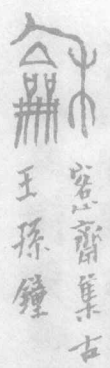 龢
愙齋集古
王孫鐘